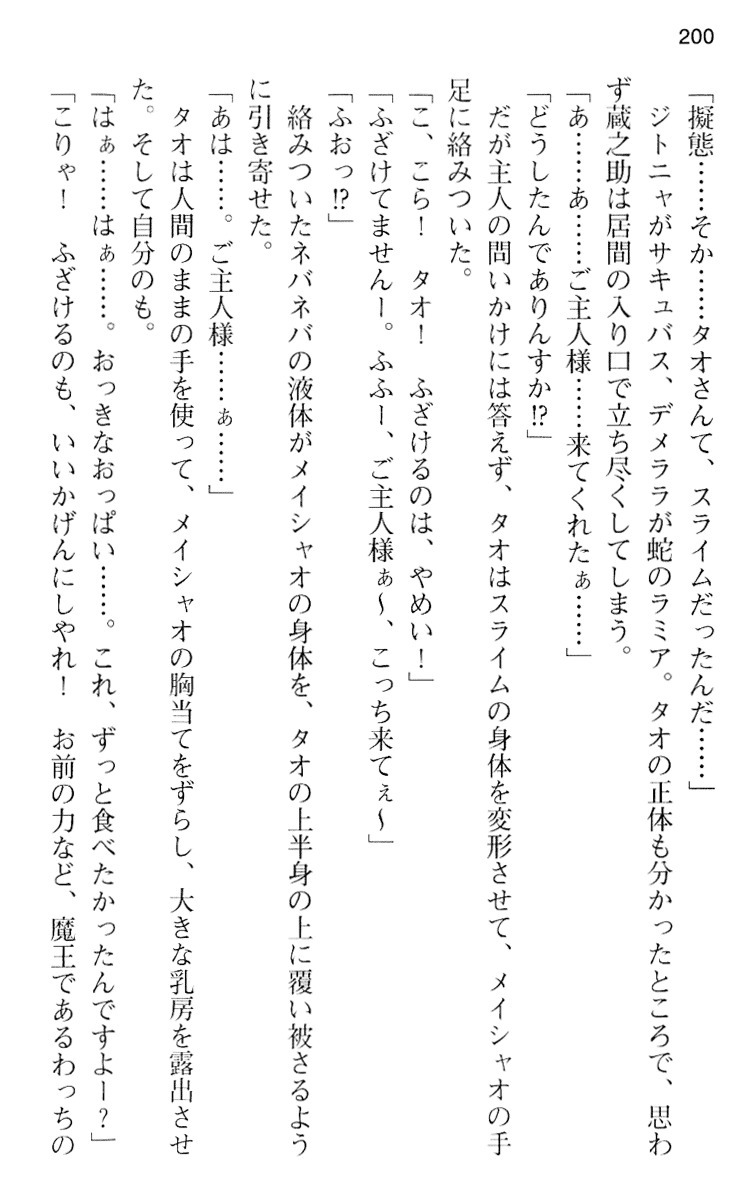 200
「擬態……そか……タオさんて、スライムだったんだ……」
　ジトニャがサキュバス、デメララが蛇のラミア。タオの正体も分かったところで、思わ
ず蔵之助は居間の入り口で立ち尽くしてしまう。
「あ……あ……ご主人様……来てくれたぁ……」
「どうしたんでありんすか⁉」
　だが主人の問いかけには答えず、タオはスライムの身体を変形させて、メイシャオの手
足に絡みついた。
「こ、こら！　タオ！　ふざけるのは、やめい！」
「ふざけてませんー。ふふー、ご主人様ぁ～、こっち来てぇ～」
「ふおっ⁉」
　絡みついたネバネバの液体がメイシャオの身体を、タオの上半身の上に覆い被さるよう
に引き寄せた。
「あは……。ご主人様……ぁ……」
　タオは人間のままの手を使って、メイシャオの胸当てをずらし、大きな乳房を露出させ
た。そして自分のも。
「はぁ……はぁ……。おっきなおっぱい……。これ、ずっと食べたかったんですよー？」
「こりゃ！　ふざけるのも、いいかげんにしやれ！　お前の力など、魔王であるわっちの